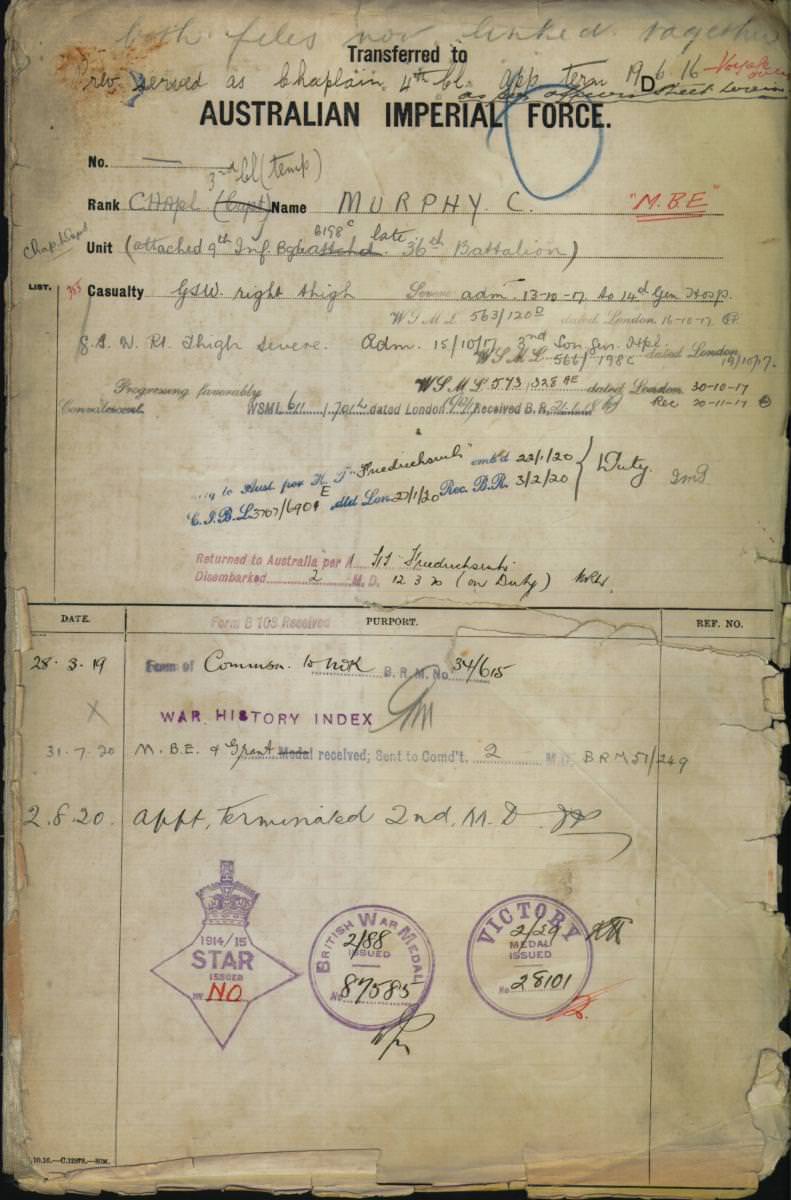 both files now linked together
Transferred to
Prev served as Chaplain 4th Cl. app term 19 6 16 Voyage only
D
AUSTRALIAN IMPERIAL FORCE.
No. —
3rd Cl (temp)
Rank CHAPL (Capt) Name MURPHY. C. "M.B.E"
Unit (attached 9th Inf. Bgde late 36th Battalion)
LIST.
Casualty GSW. right thigh Severe adm. 13-10-17 to 14th Gen Hosp.
W S M L 563/120 D dated London 16-10-17
G.S.W. Rt. Thigh severe. Adm. 15/10/17 3rd Lon. Gen. Hpl
W S M L 566/198C dated London 19/10/17.
Progressing favorably W S M L 573/328 AE dated London 30-10-17
Convalescent. WSML 611 / dated London Received B.R. Rec 20-11-17
to Aust per H T "Friedrichsruh" embd 22/1/20 } Duty.
C.I.B.L 3707/690 E dtd Lon 27/1/20 Rec. B.R. 3/2/20
Returned to Australia per Friedrichsruh
Disembarked 2 M.D. 12 3 20 (on Duty)
DATE. Form B 103 Received PURPORT. REF. NO.
28. 3. 19 Form of Commsn. to NOK B.R.M. No 34/615
X WAR HISTORY INDEX
31. 7. 20 M.B.E. & Grant Medal received; Sent to Comd't. 2 M.D. BRM 51/249
2. 8. 20. Appt, terminated 2nd. M. D.
1914/15
STAR
ISSUED
NO
BRITISH WAR MEDAL
2/88
ISSUED
No 87585
VICTORY
2/29
MEDAL
ISSUED
No 28101
10.16.—C.12978.—50M.